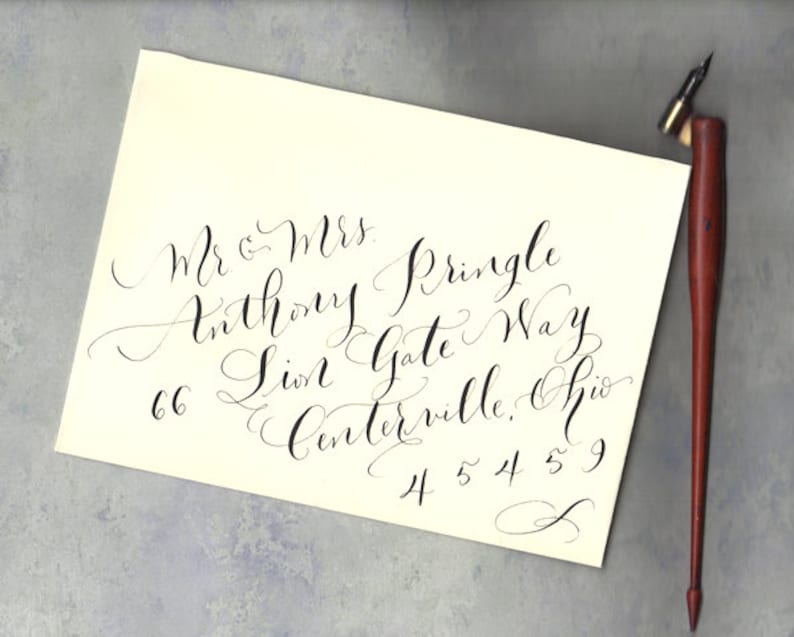 Mr & Mrs.
Anthony Pringle
66 Lion Gate Way
Centerville, Ohio
45459